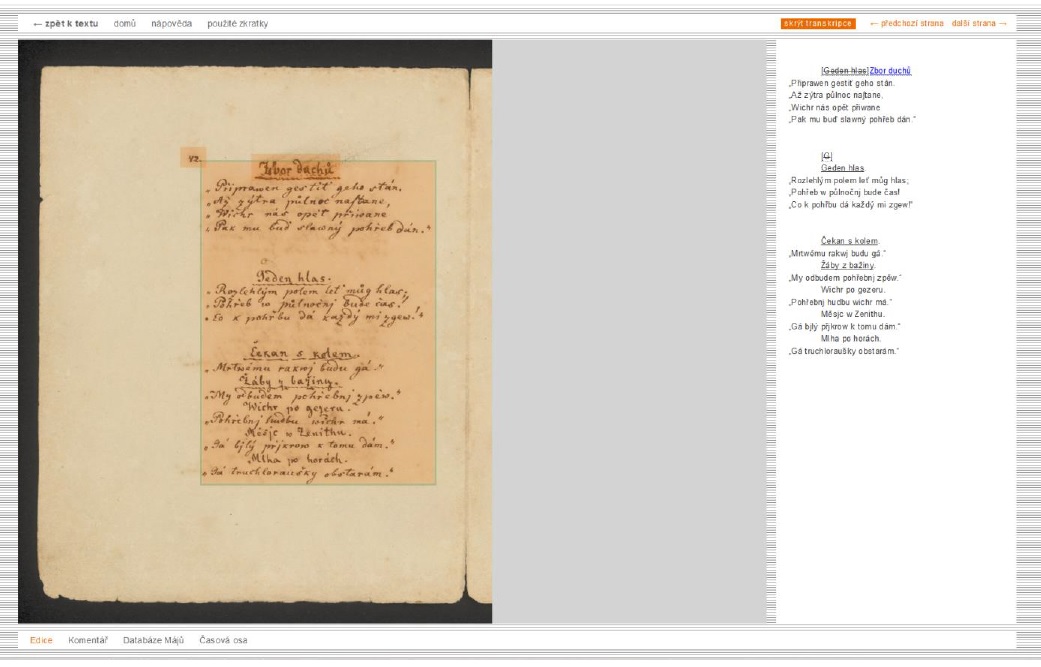 ← zpět k textu domů nápověda použité zkratky
skrýt transkripce ← předchozí strana další strana →
v2.
Zbor duchů
„Připrawen gestiť geho stán.
„Až zýtra půlnoc naſtane,
„Wichr nás opět přiwane
„Pak mu buď slawný pohřeb dán.“
Geden hlas.
„Rozlehlým polem leť můg hlas;
„Pohřeb w půlnočnj bude čas!
„Co k pohřbu dá každý mi zgew!“
Čekan s kolem.
„Mrtwému rakwj budu gá.“
Žáby z bažiny.
„My odbudem pohřebnj zpěw.“
Wichr po gezeru.
„Pohřebnj hudbu wichr má.“
Měsjc w Zenithu.
„Gá bjlý přjkrow k tomu dám.“
Mlha po horách.
„Gá truchloraušky obstarám.“
[Geden hlas]Zbor duchů
„Připrawen gestiť geho stán.
„Až zýtra půlnoc naſtane,
„Wichr nás opět přiwane
„Pak mu buď slawný pohřeb dán.“
[G]
Geden hlas.
„Rozlehlým polem leť můg hlas;
„Pohřeb w půlnočnj bude čas!
„Co k pohřbu dá každý mi zgew!“
Čekan s kolem.
„Mrtwému rakwj budu gá.“
Žáby z bažiny.
„My odbudem pohřebnj zpěw.“
Wichr po gezeru.
„Pohřebnj hudbu wichr má.“
Měsjc w Zenithu.
„Gá bjlý přjkrow k tomu dám.“
Mlha po horách.
„Gá truchloraušky obstarám.“
Edice Komentář Databáze Májů Časová osa